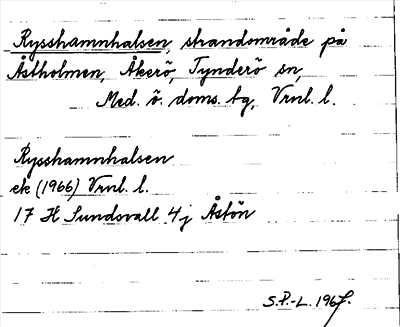 Rysshamnhalsen, strandområde på
Åstholmen, Åkerö, Tynderö sn,
Med. ö. doms. tg, Vrnl. l.
Rysshamnhalsen
ek (1966) Vrnl. l.
17 H Sundsvall 4j Åstön
S.P.-L. 1967.